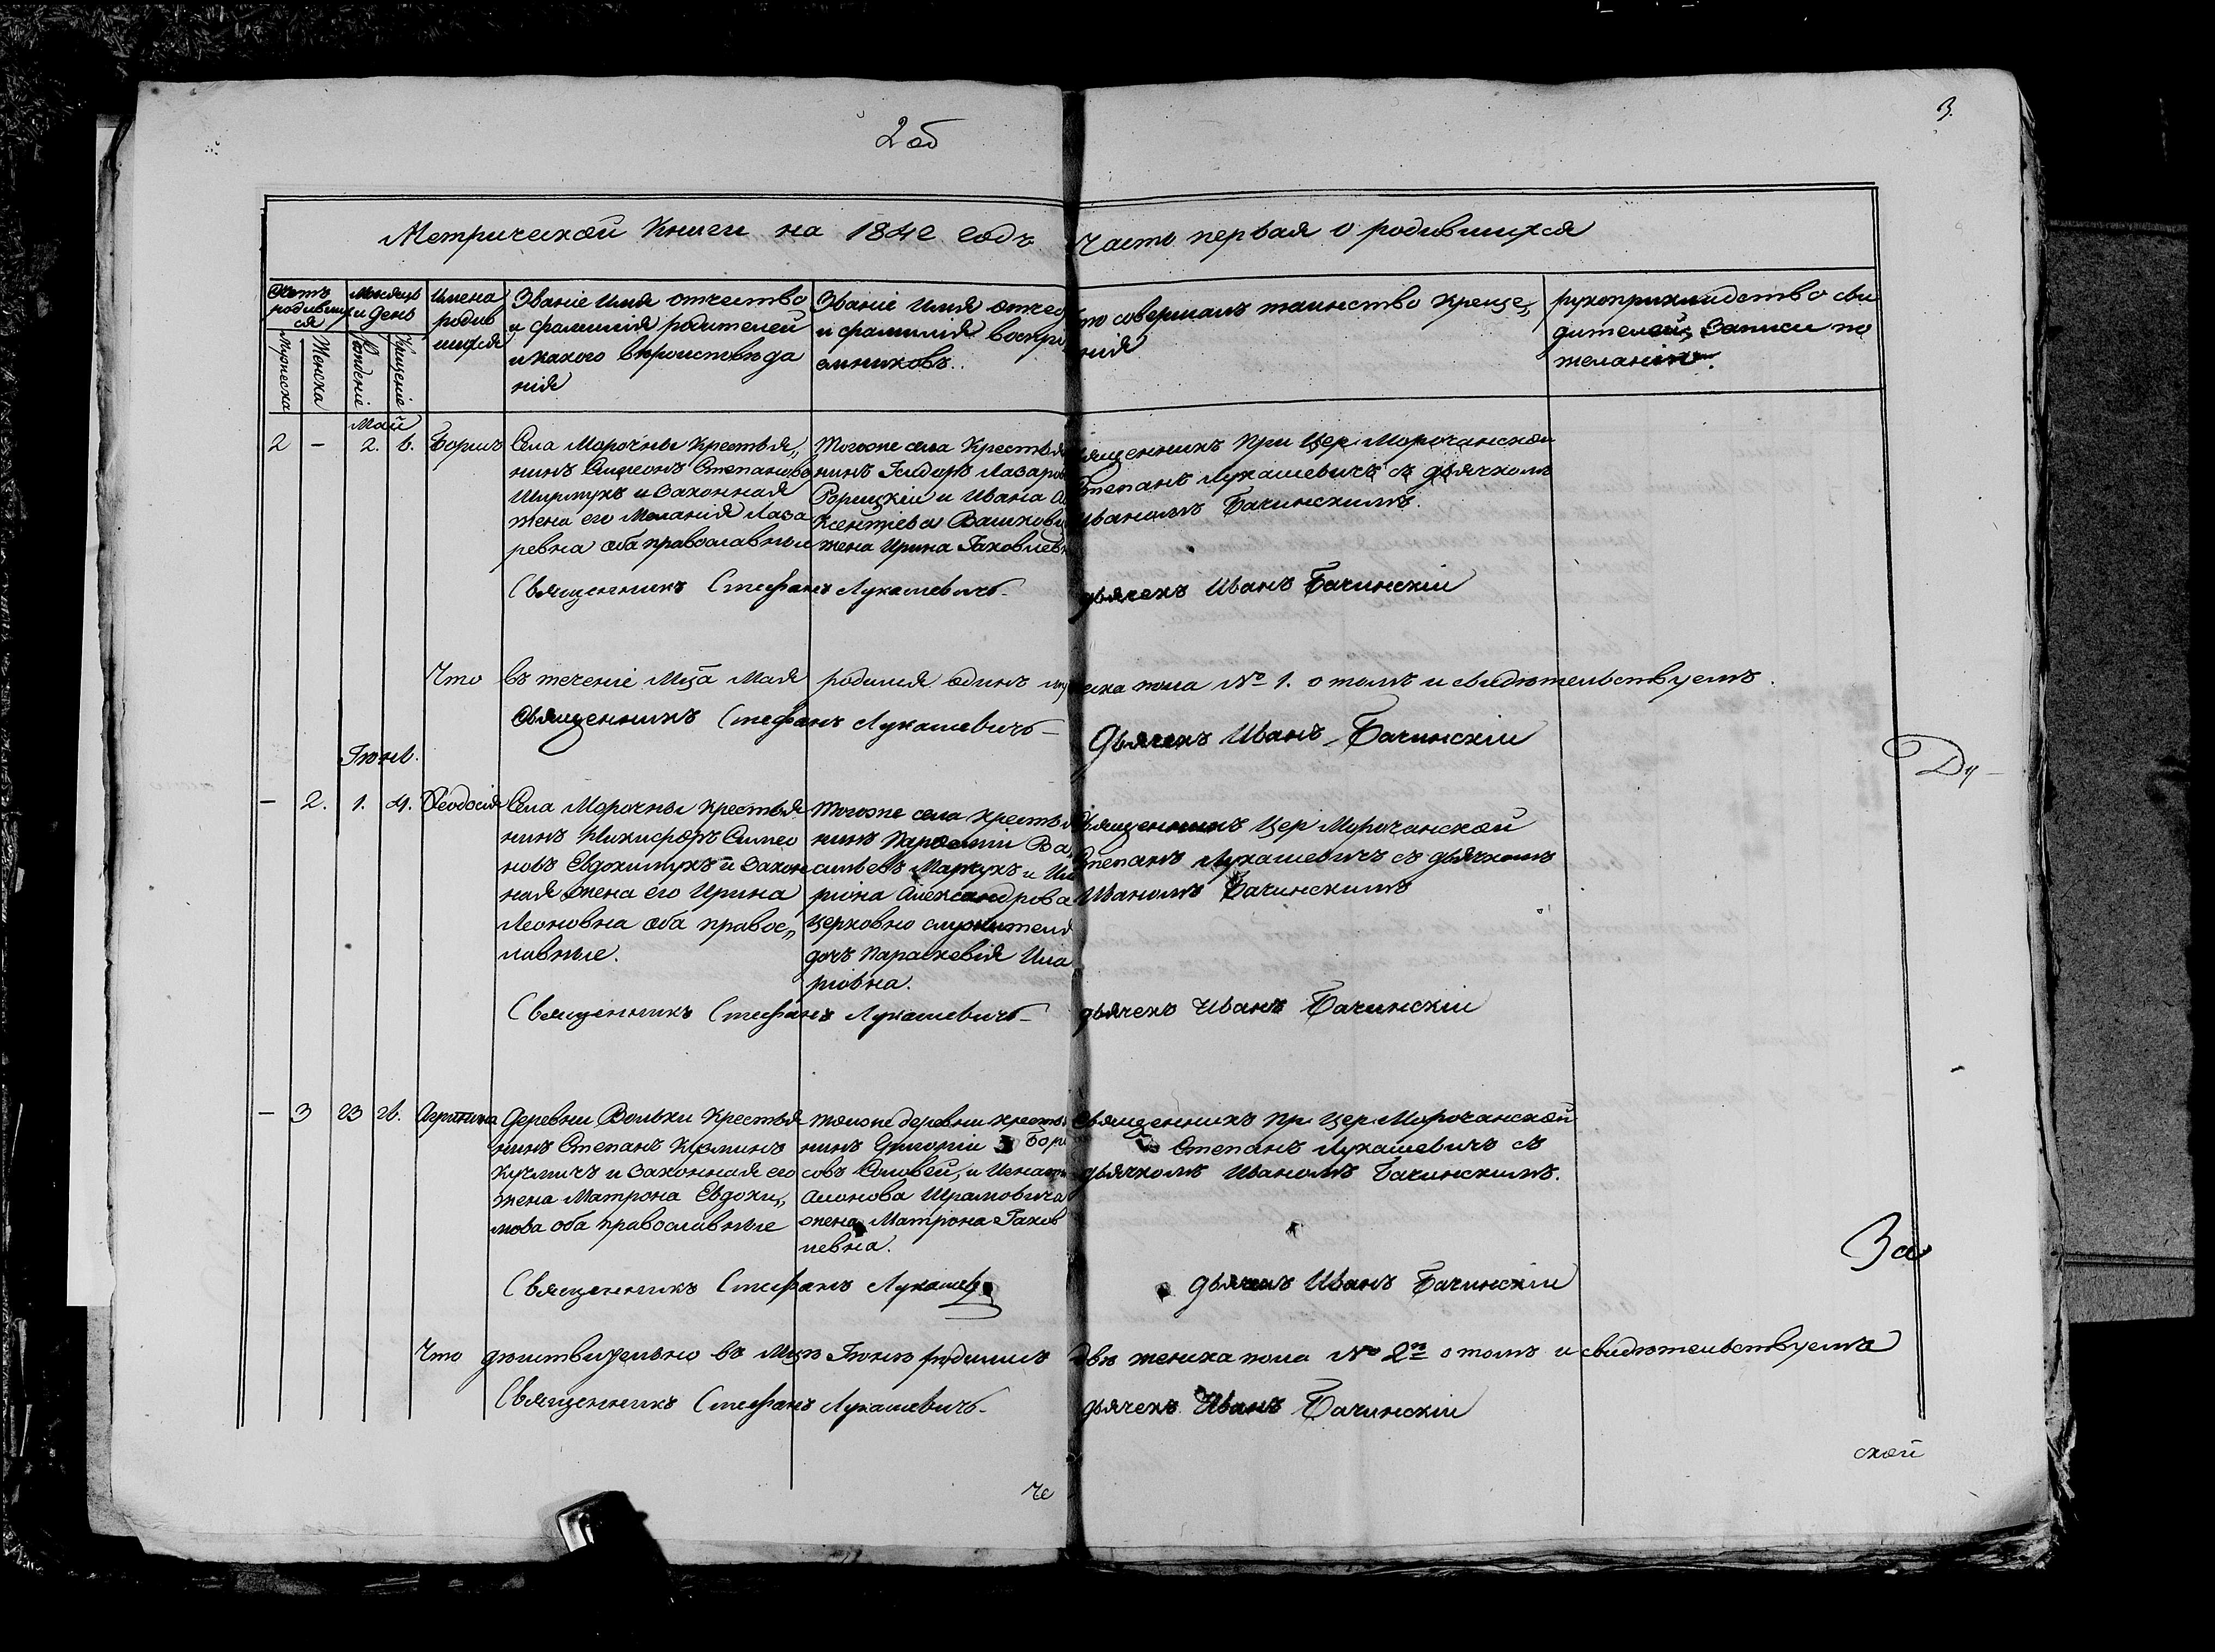 2 об
3.
Метрической Книги на 184 годъ Часть первая о родившихся
Счетъ родившихся
Мужеска
Женска
Месяцъ и день
Рожденіе
Крещеніе
Имена
родив
шихся
Званіе Имя отчество
и фамилія родителей
и какого вѣроисповѣда
нія
Званіе Имя отчес
и фамилія воспрі
емниковъ.
то совершалъ таинство Креще,,
нія
рукоприкладство сви
дителей, Записи по
желанію.
Май
2 - 2. 6. Борисъ
Села Морочны Крестья,,
нинъ Симеонъ Степановъ
и Законная
жена его Меланія Лаза
ревна оба православные
Тогоже села Крестья
нинъ Исидоръ Лазаров
и Ивана А
ксентіева
жена Ирина Іаковлев
вященникъ При Цер. Морочанской
Степанъ Лукашевичъ съ дьячкомъ
Иваномъ Бачинскимъ.
Священникъ Стефанъ Лукашевичъ
дьячекъ Иванъ Бачинскій
Что въ теченіе Мца Мая родился одинъ муж
еска пола № 1. о томъ и свидѣтельствуемъ.
Священникъ Стефанъ Лукашевичъ
Дьячекъ Иванъ Бачинскій
Ду
Іюнь.
- 2. 1. 4. Феодосія
Села Морочны Крестья
нинъ Никифоръ Симео
новъ Евдокимукъ и Закон
ная жена его Ирина
Леоновна оба правос,,
лавные.
Тогоже села Крестья
нинъ Ва
сильевъ и Ила
ріона Александрова
Церковно служителя
дочь Параскевія Ила
ріовна.
Священникъ Цер Морочанской
Степанъ Лукашевичъ съ дьячкомъ
Иваномъ Бачинскимъ
Священникъ Стефанъ Лукашевичъ
дьячекъ Иванъ Бачинскій
- 3 23 26. Агрипина
Деревни Вольки Крестья
нинъ Степанъ Кузминъ
и Законная его
жена Матрона Евдоки,,
мова оба православные
Тоже деревни Кресть
нинъ Григорій Бори
совъ Соловей, и
Шрамовича
жена Матрона Іаков
левна.
Священникъ Пр Цер. Морочанской
Степанъ Лукашевичъ съ
дьячкомъ Иваномъ Бачинскимъ.
За
Священникъ Стефанъ Лукашев
дьячекъ Иванъ Бачинскій
Что дѣйствительно въ Мцѣ Іюнѣ родились
двѣ женска пола № 2 о томъ и свидѣтельствуемъ
Священникъ Стефанъ Лукашевичъ
дьячекъ Иванъ Бачинскій
ской
че